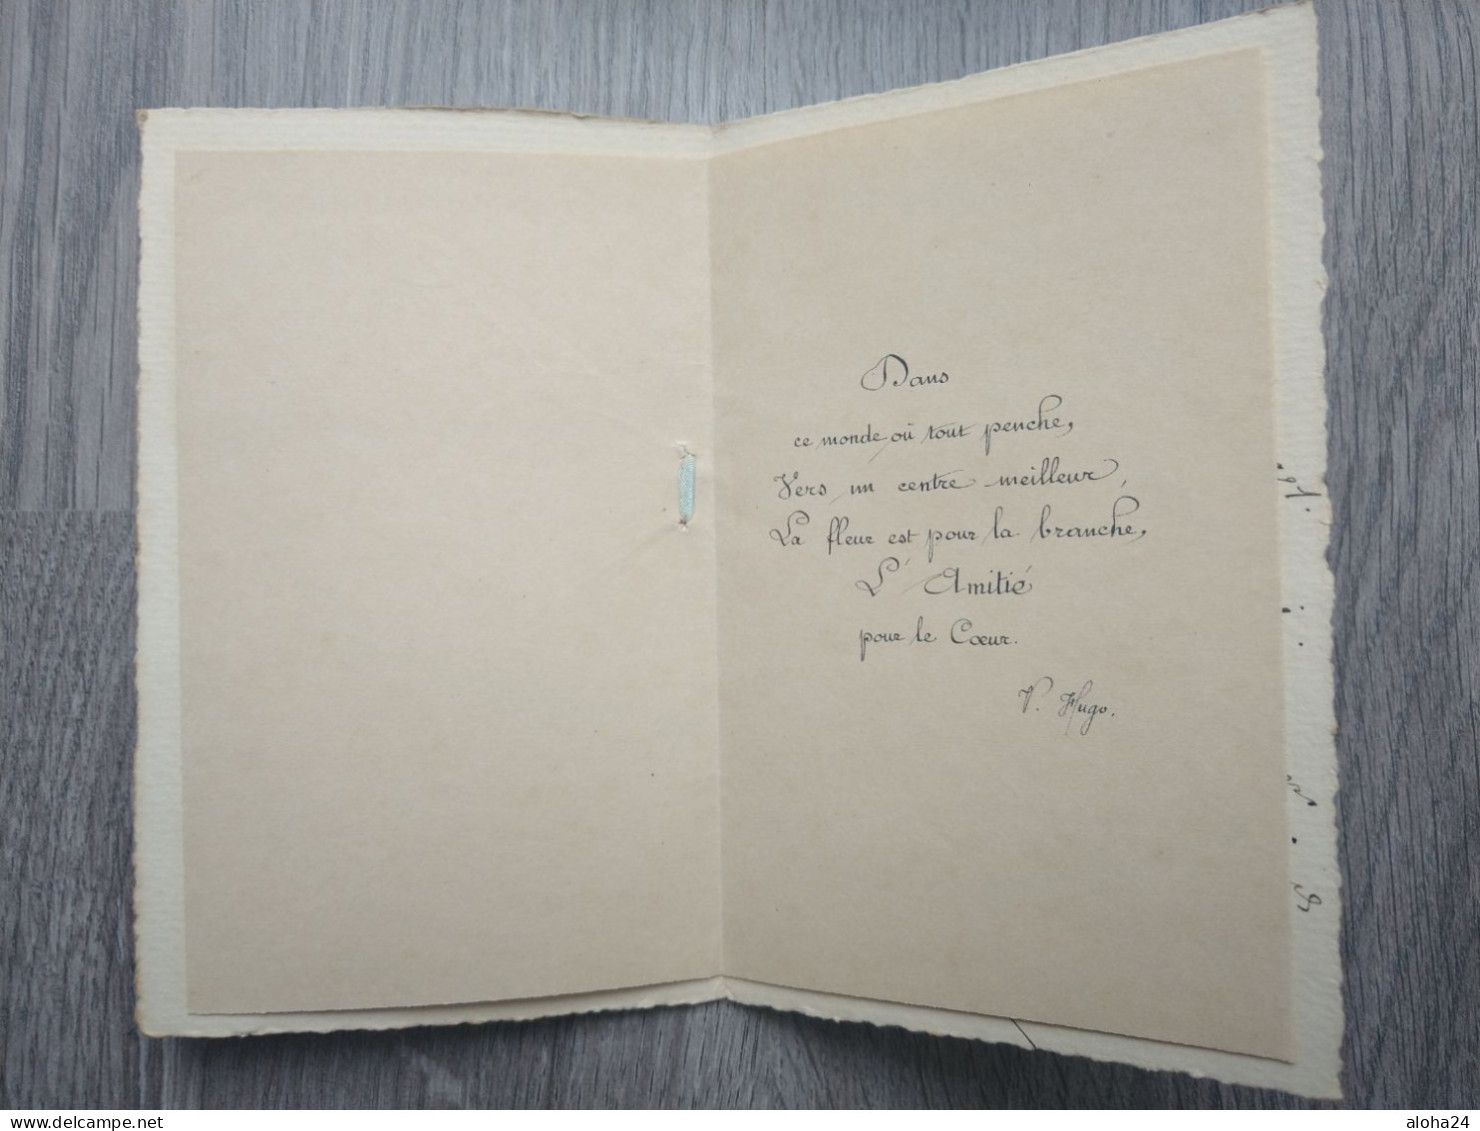 Dans
ce monde où tout penche,
Vers un centre meilleur,
La fleur est pour la branche,
L'Amitié
pour le Cœur.
V. Hugo.
www.delcampe.net
aloha24